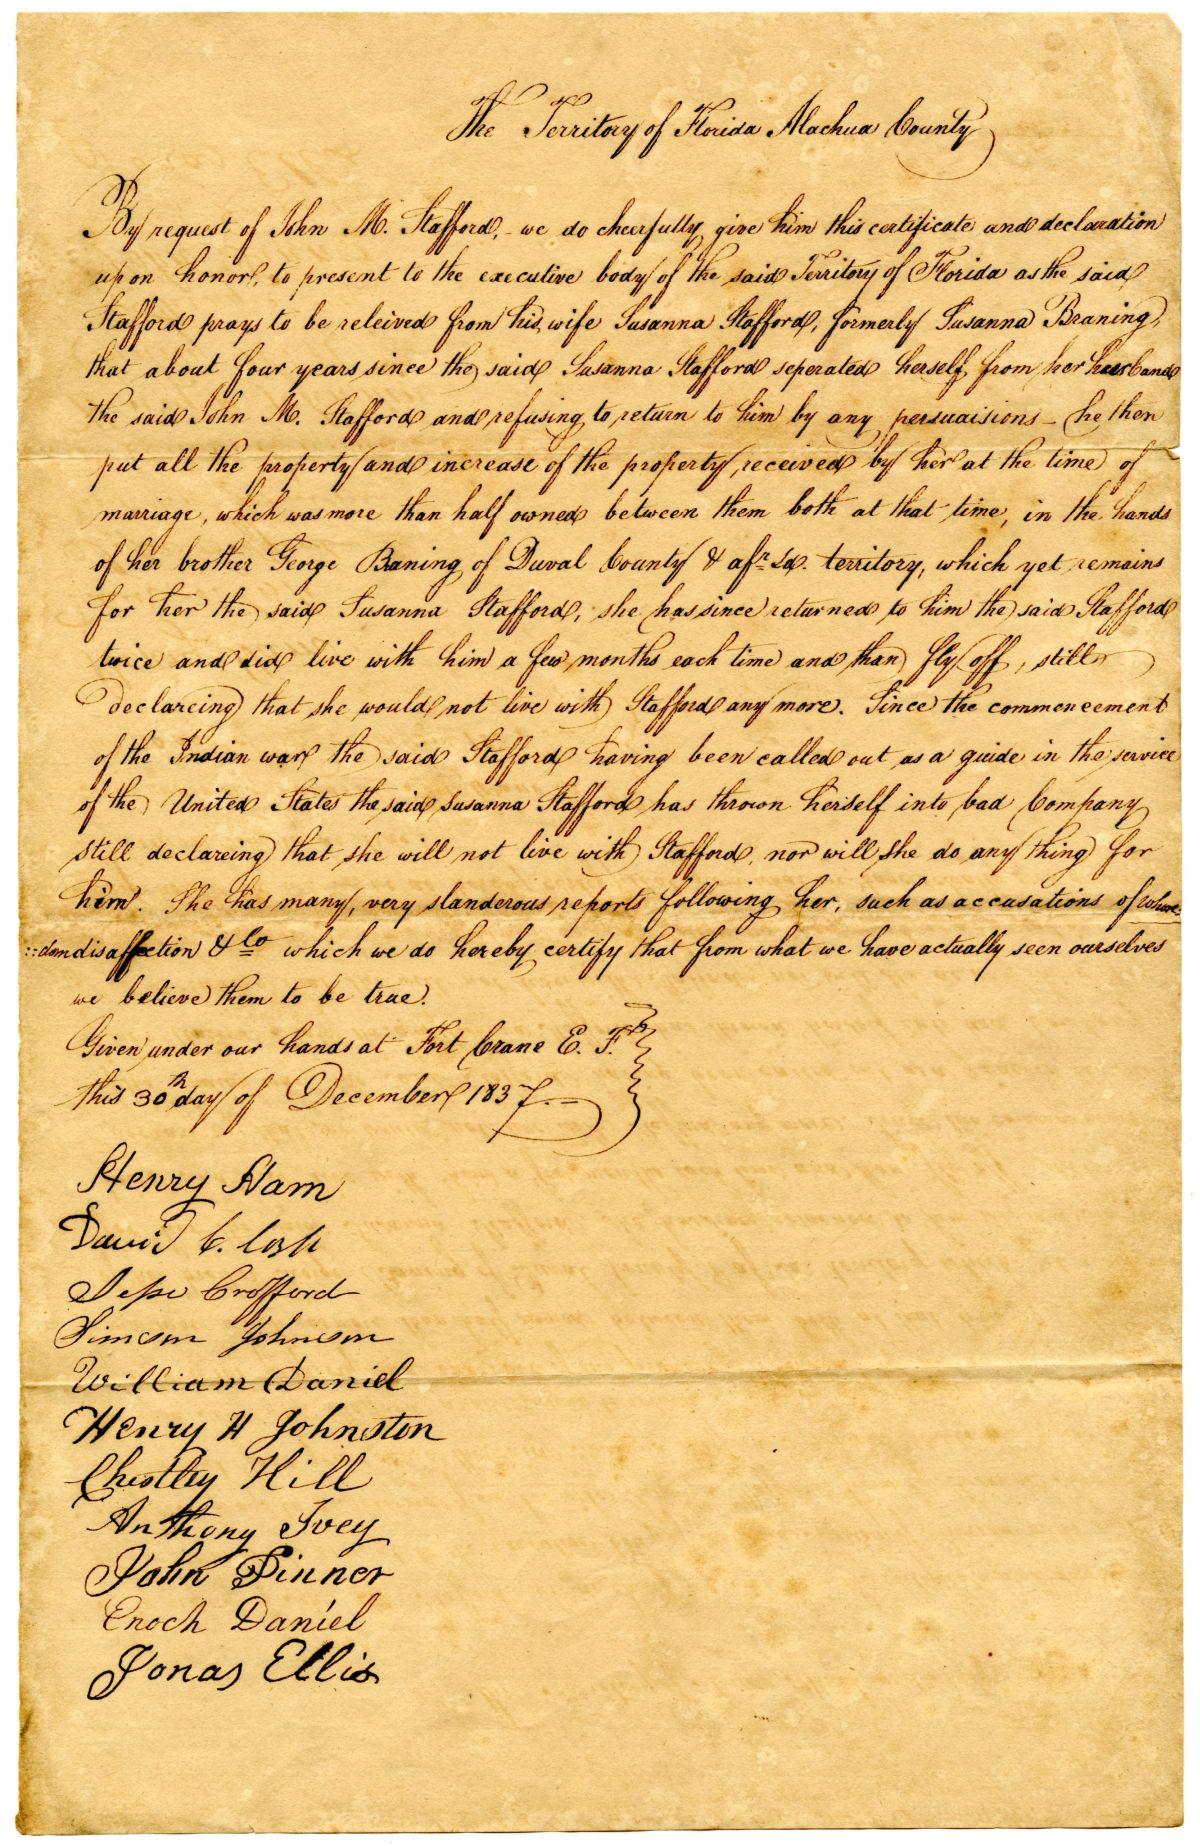 The Territory of Florida Alachua County
By request of John M. Stafford, - we do cheerfully give him this certificate and declaration
upon honor, to present to the executive body of the said Territory of Florida as the said
Stafford prays to be releived from his wife Susanna Stafford, formerly Susanna Braning,
that about four years since the said Susanna Stafford seperated herself from her husband
the said John M. Stafford and refusing to return to him by any persuaisions - he then
put all the property and increase of the property, received by her at the time of
marriage, which was more than half owned between them both at that time, in the hands
of her brother George Baning of Duval County & afr. sd. territory, which yet remains
for her the said Susanna Stafford, she has since returned to him the said Stafford
twice and did live with him a few months each time and than fly off, still
declareing that she would not live with Stafford any more. Since the commencement
of the Indian war the said Stafford having been called out as a guide in the service
of the United States the said Susanna Stafford has thrown herself into bad Company
still declareing that she will not live with Stafford, nor will she do any thing for
him. She has many, very slanderous reports following her, such as accusations of whore-
::dom disaffection & Co which we do hereby certify that from what we have actually seen ourselves
we believe them to be true.
Given under our hands at Fort Crane E. F.
this 30th day of December 1837.
Henry Ham
David C.
Jesse Crofford
Simeon Johnson
William Daniel
Henry H Johnston
Chestley Hill
Anthony Ivey
John Pinner
Enoch Daniel
Jonas Ellis